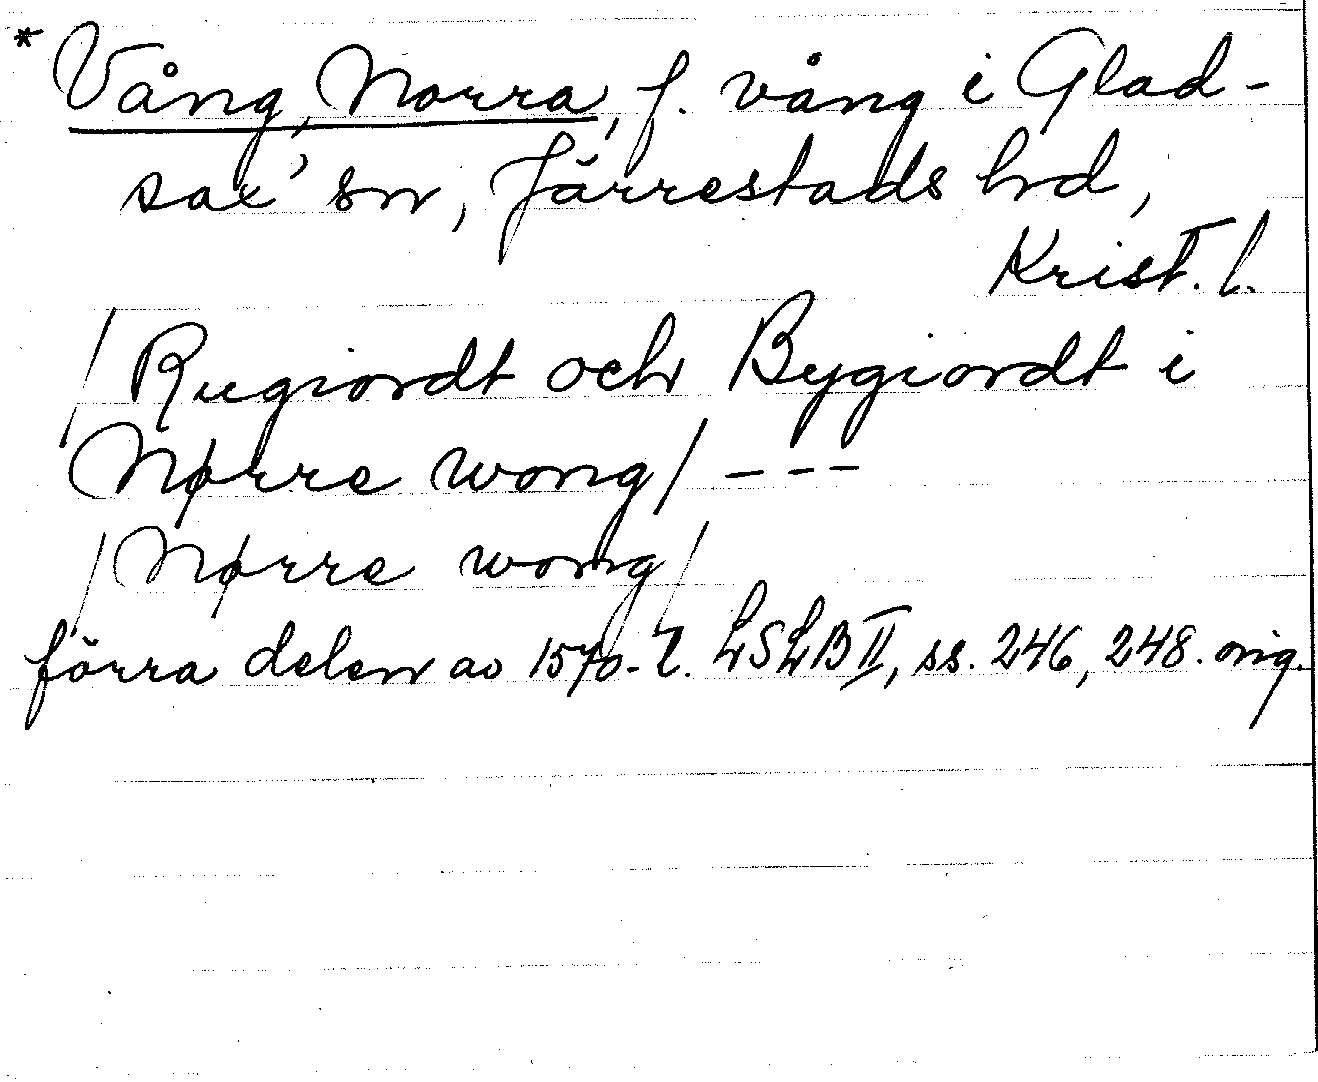 * Vång, Norra, f. vång i Glad-
sax' sn, Järrestads hrd,
Krist. l.
/Rugiordt och Bygiordt i
Nørre wong/ ---
/Nørre wong/
förra delen av 1570-t. LSLB II, ss. 246, 248. orig.